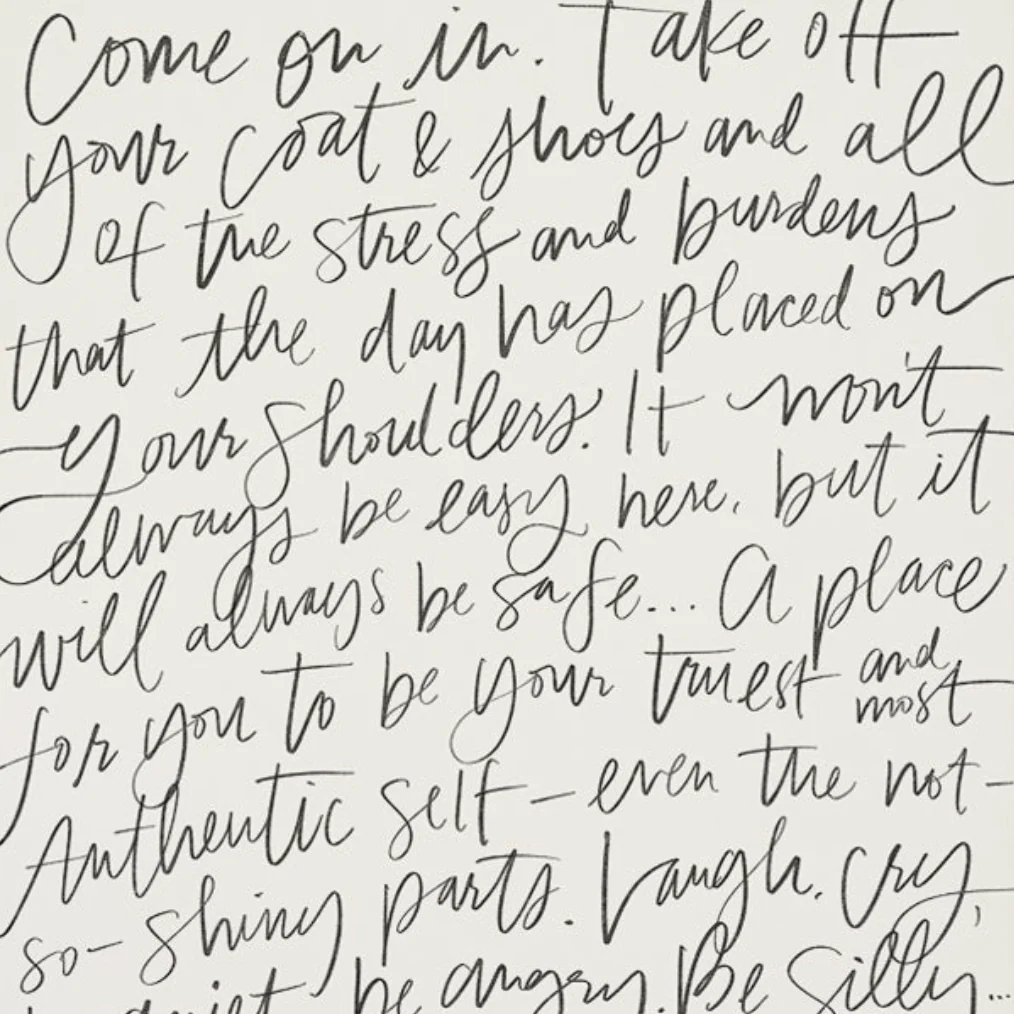 Come on in. Take off
your coat & shoes and all
of the stress and burdens
that the day has placed on
your shoulders. It won't
always be easy here, but it
will always be safe... A place
for you to be your truest and most
Authentic self - even the not-
so- shiny parts. Laugh, cry,
be quiet, be angry. Be silly...